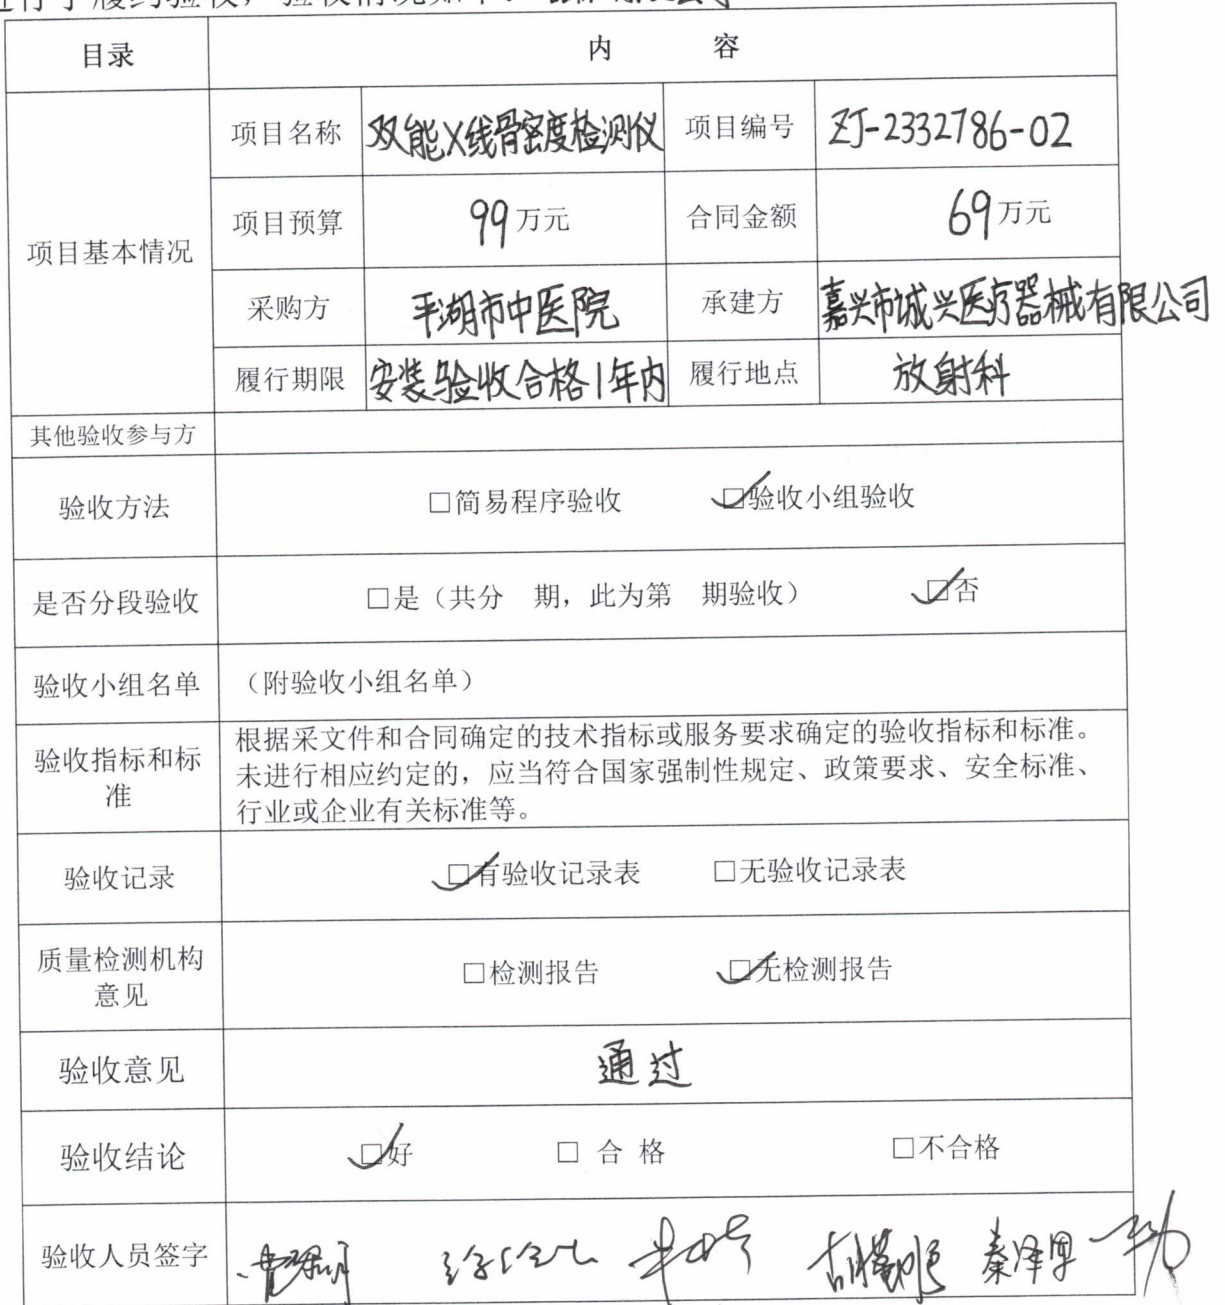 进行了履约验收，验收情况如下：
目录 内 容
项目基本情况
项目名称 双能X线骨密度检测仪 项目编号 ZJ-2332786-02
项目预算 99万元 合同金额 69万元
采购方 平湖市中医院 承建方 嘉兴市诚兴医疗器械有限公司
履行期限 安装验收合格1年内 履行地点 放射科
其他验收参与方
验收方法 □简易程序验收 ☑验收小组验收
是否分段验收 □是（共分 期，此为第 期验收） ☑否
验收小组名单 （附验收小组名单）
验收指标和标
准
根据采文件和合同确定的技术指标或服务要求确定的验收指标和标准。
未进行相应约定的，应当符合国家强制性规定、政策要求、安全标准、
行业或企业有关标准等。
验收记录 ☑有验收记录表 □无验收记录表
质量检测机构
意见
□检测报告 ☑无检测报告
验收意见 通过
验收结论 ☑好 □ 合 格 □不合格
验收人员签字